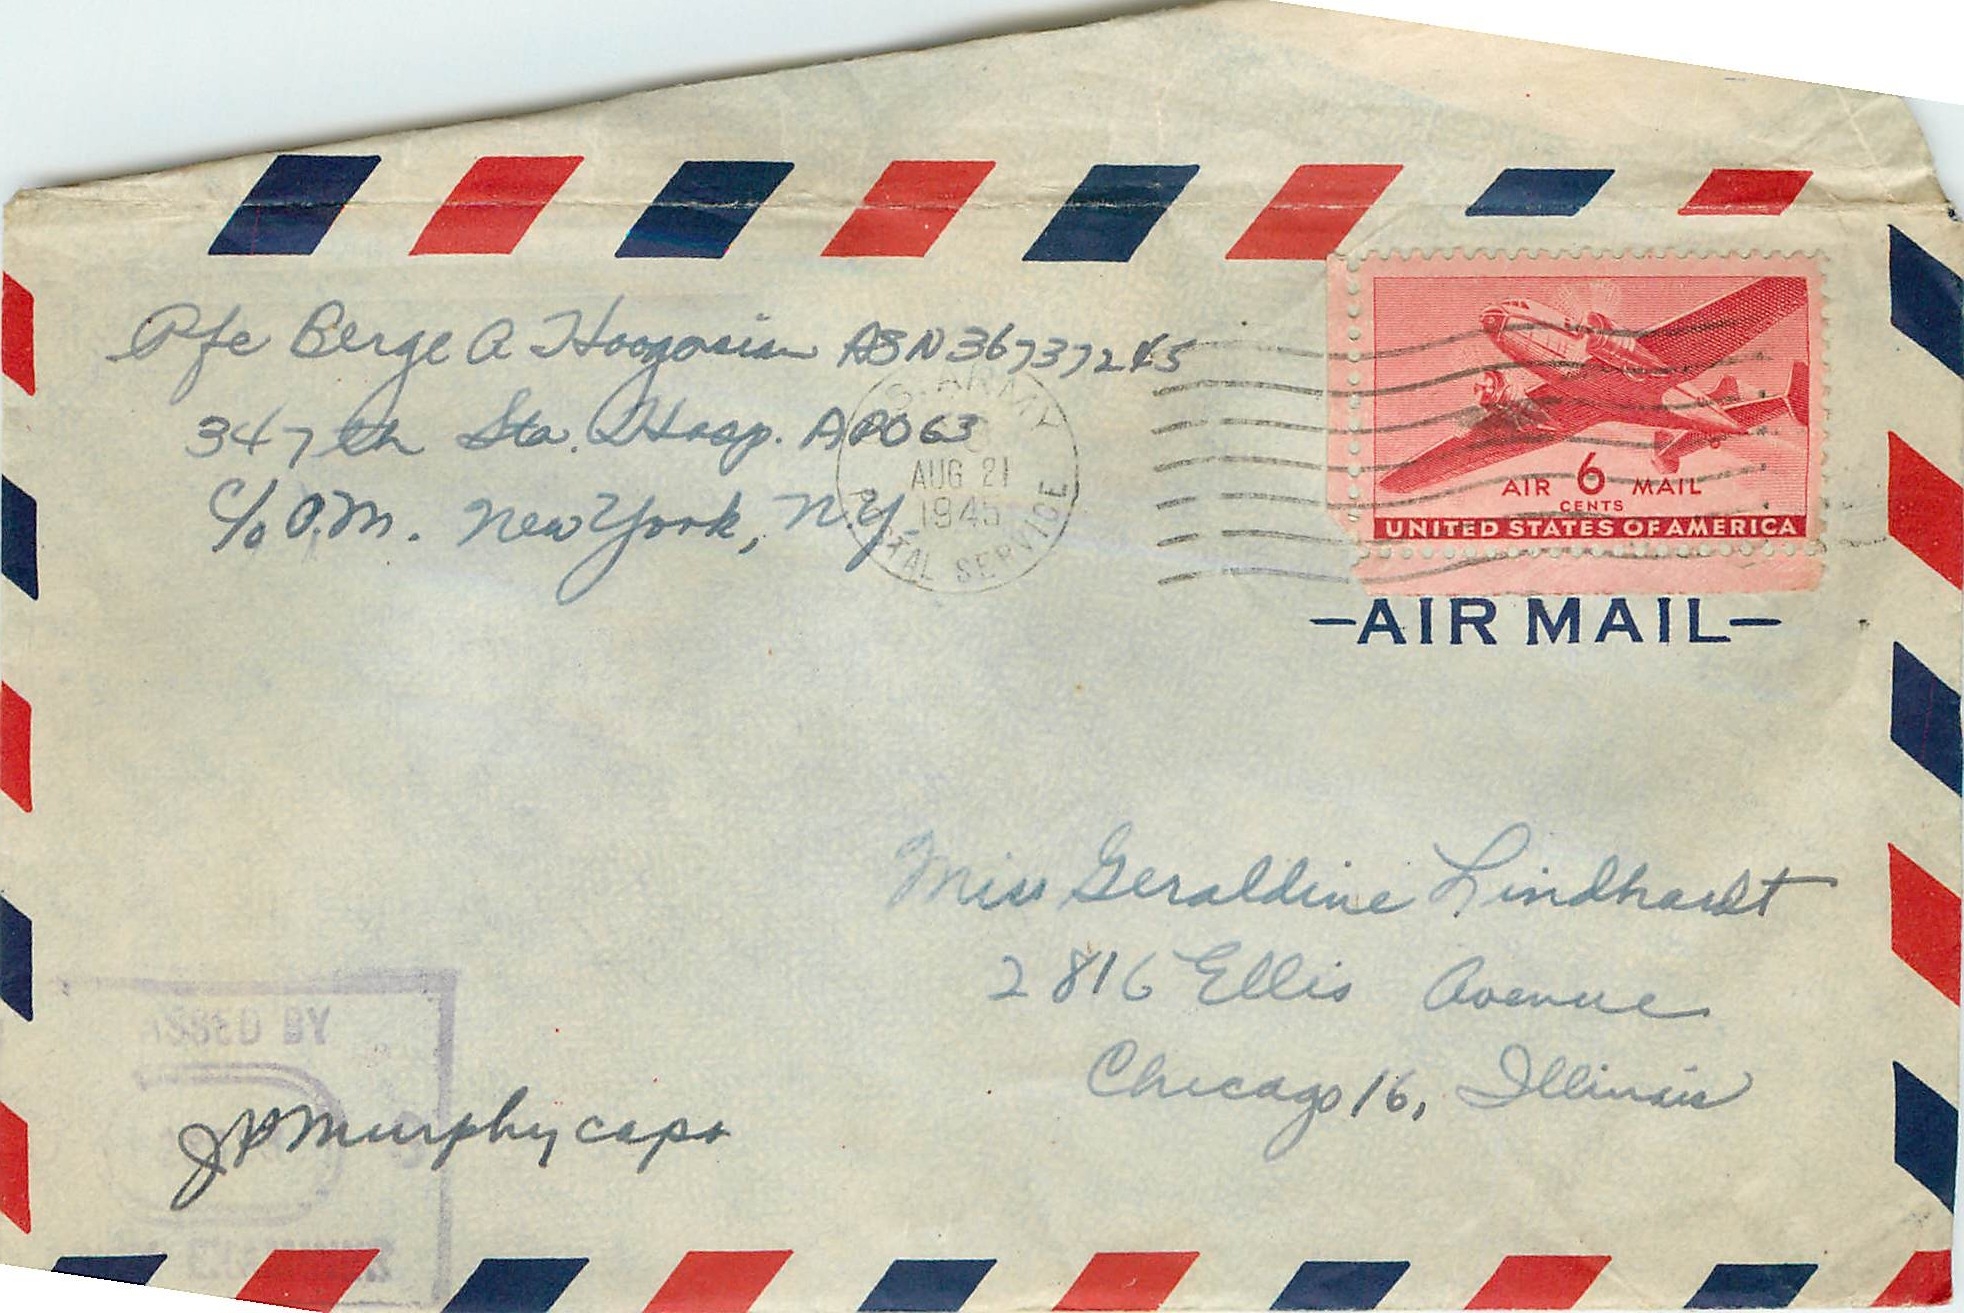 Pfc Berge A Hoogasian ASN 36737245
347th Sta. Hosp. APO 63
c/o P.M. New York, N.Y.
U.S. ARMY
AUG 21
1945
POSTAL SERVICE
AIR 6 MAIL
CENTS
UNITED STATES OF AMERICA
-AIR MAIL-
Miss Geraldine Lindhardt
2816 Ellis Avenue
Chicago 16, Illinois
PASSED BY
J P Murphy Capt